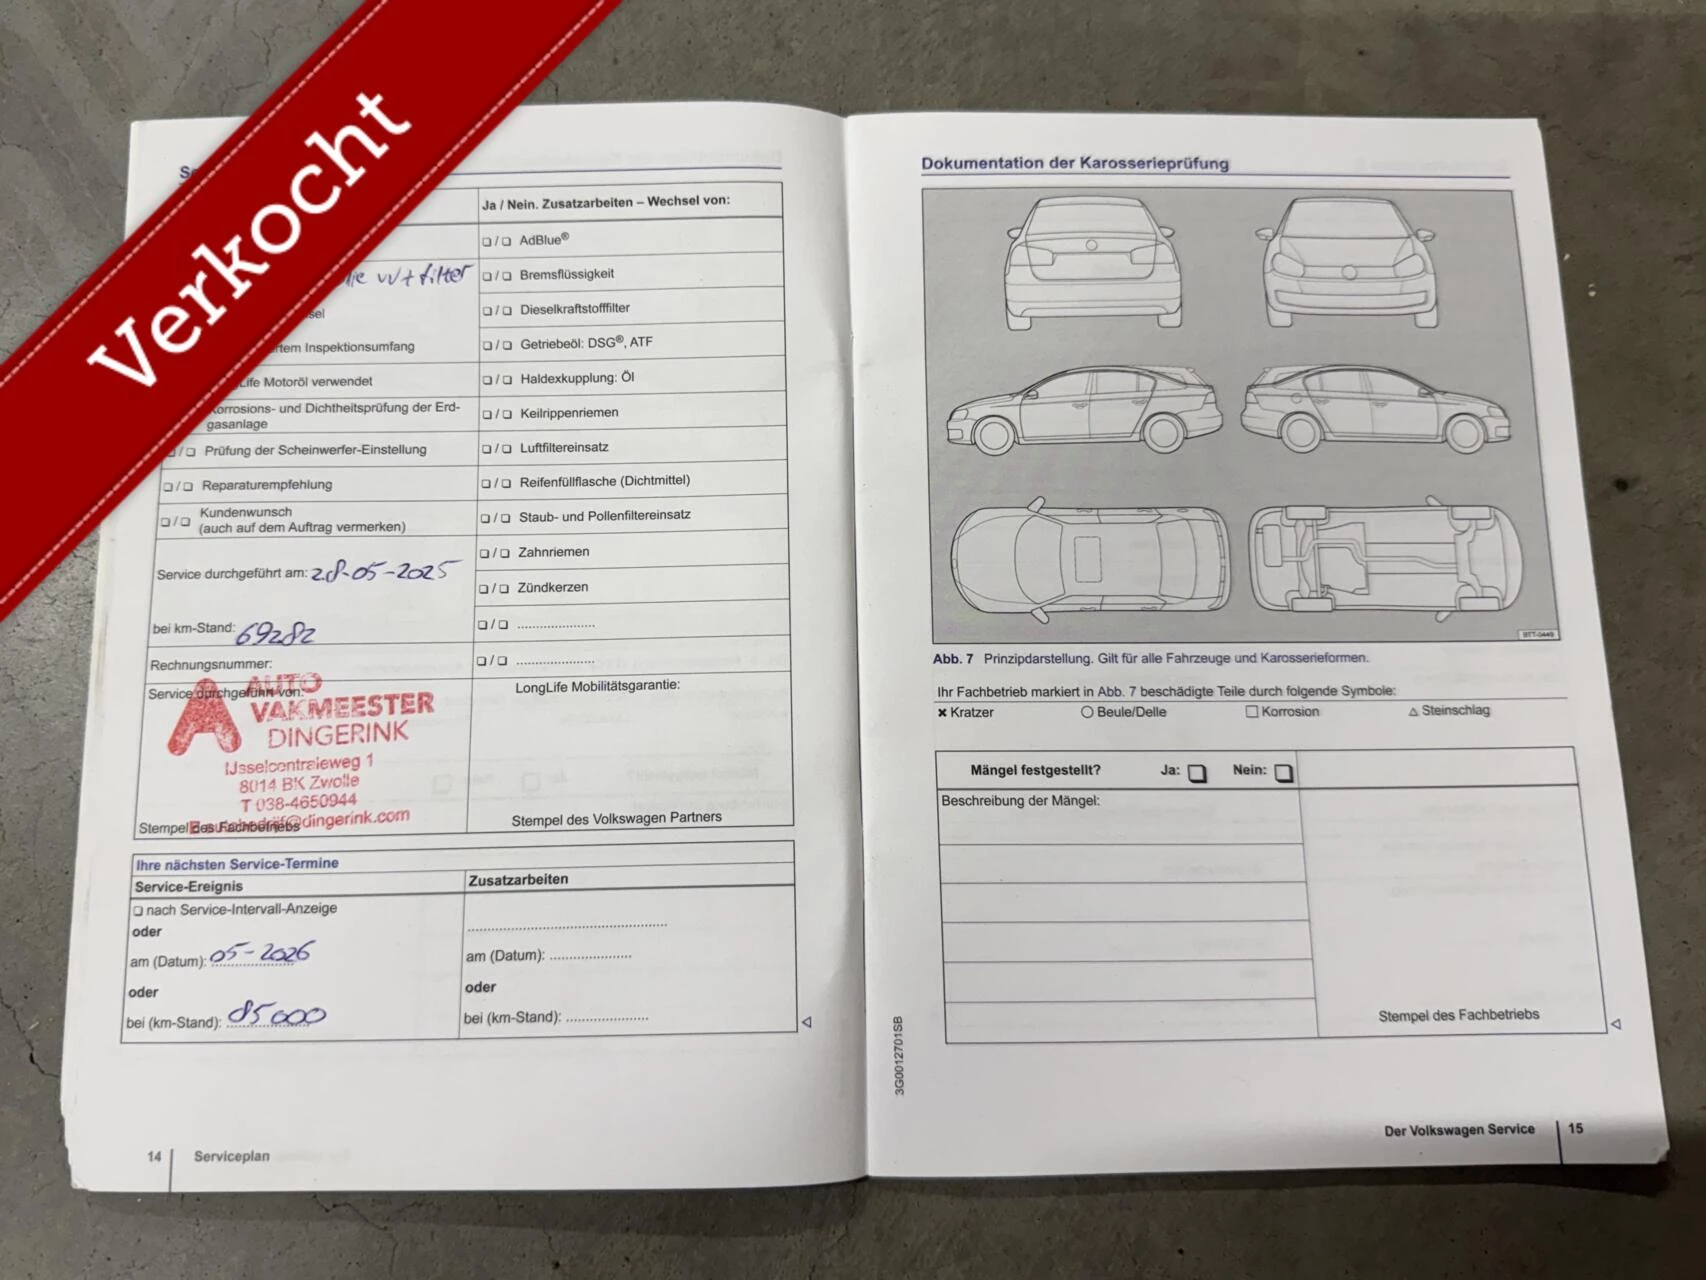 Verkocht
Ja / Nein. Zusatzarbeiten – Wechsel von:
❏ / ❏ AdBlue®
vv+ filter
❏ / ❏ Bremsflüssigkeit
❏ / ❏ Dieselkraftstofffilter
Inspektionsumfang
❏ / ❏ Getriebeöl: DSG®, ATF
Life Motoröl verwendet
❏ / ❏ Haldexkupplung: Öl
Korrosions- und Dichtheitsprüfung der Erd-
gasanlage
❏ / ❏ Keilrippenriemen
❏ / ❏ Prüfung der Scheinwerfer-Einstellung
❏ / ❏ Luftfiltereinsatz
❏ / ❏ Reparaturempfehlung
❏ / ❏ Reifenfüllflasche (Dichtmittel)
❏ / ❏ Kundenwunsch
(auch auf dem Auftrag vermerken)
❏ / ❏ Staub- und Pollenfiltereinsatz
❏ / ❏ Zahnriemen
Service durchgeführt am: 28-05-2025
❏ / ❏ Zündkerzen
bei km-Stand: 69282
❏ / ❏ ......................
❏ / ❏ ......................
Rechnungsnummer:
Service durchgeführt von:
LongLife Mobilitätsgarantie:
AUTO
VAKMEESTER
DINGERINK
IJsselcentraleweg 1
8014 BK Zwolle
T 038-4650944
@dingerink.com
Stempel des Fachbetriebs
Stempel des Volkswagen Partners
Ihre nächsten Service-Termine
Service-Ereignis
Zusatzarbeiten
❏ nach Service-Intervall-Anzeige
oder
am (Datum): 05-2026
am (Datum): ......................
oder
oder
bei (km-Stand): 85000
bei (km-Stand): ......................
14 Serviceplan
Dokumentation der Karosserieprüfung
BTT-0449
Abb. 7 Prinzipdarstellung. Gilt für alle Fahrzeuge und Karosserieformen.
Ihr Fachbetrieb markiert in Abb. 7 beschädigte Teile durch folgende Symbole:
✖ Kratzer ○ Beule/Delle □ Korrosion △ Steinschlag
Mängel festgestellt? Ja: ❏ Nein: ❏
Beschreibung der Mängel:
Stempel des Fachbetriebs
3G0012701SB
Der Volkswagen Service 15